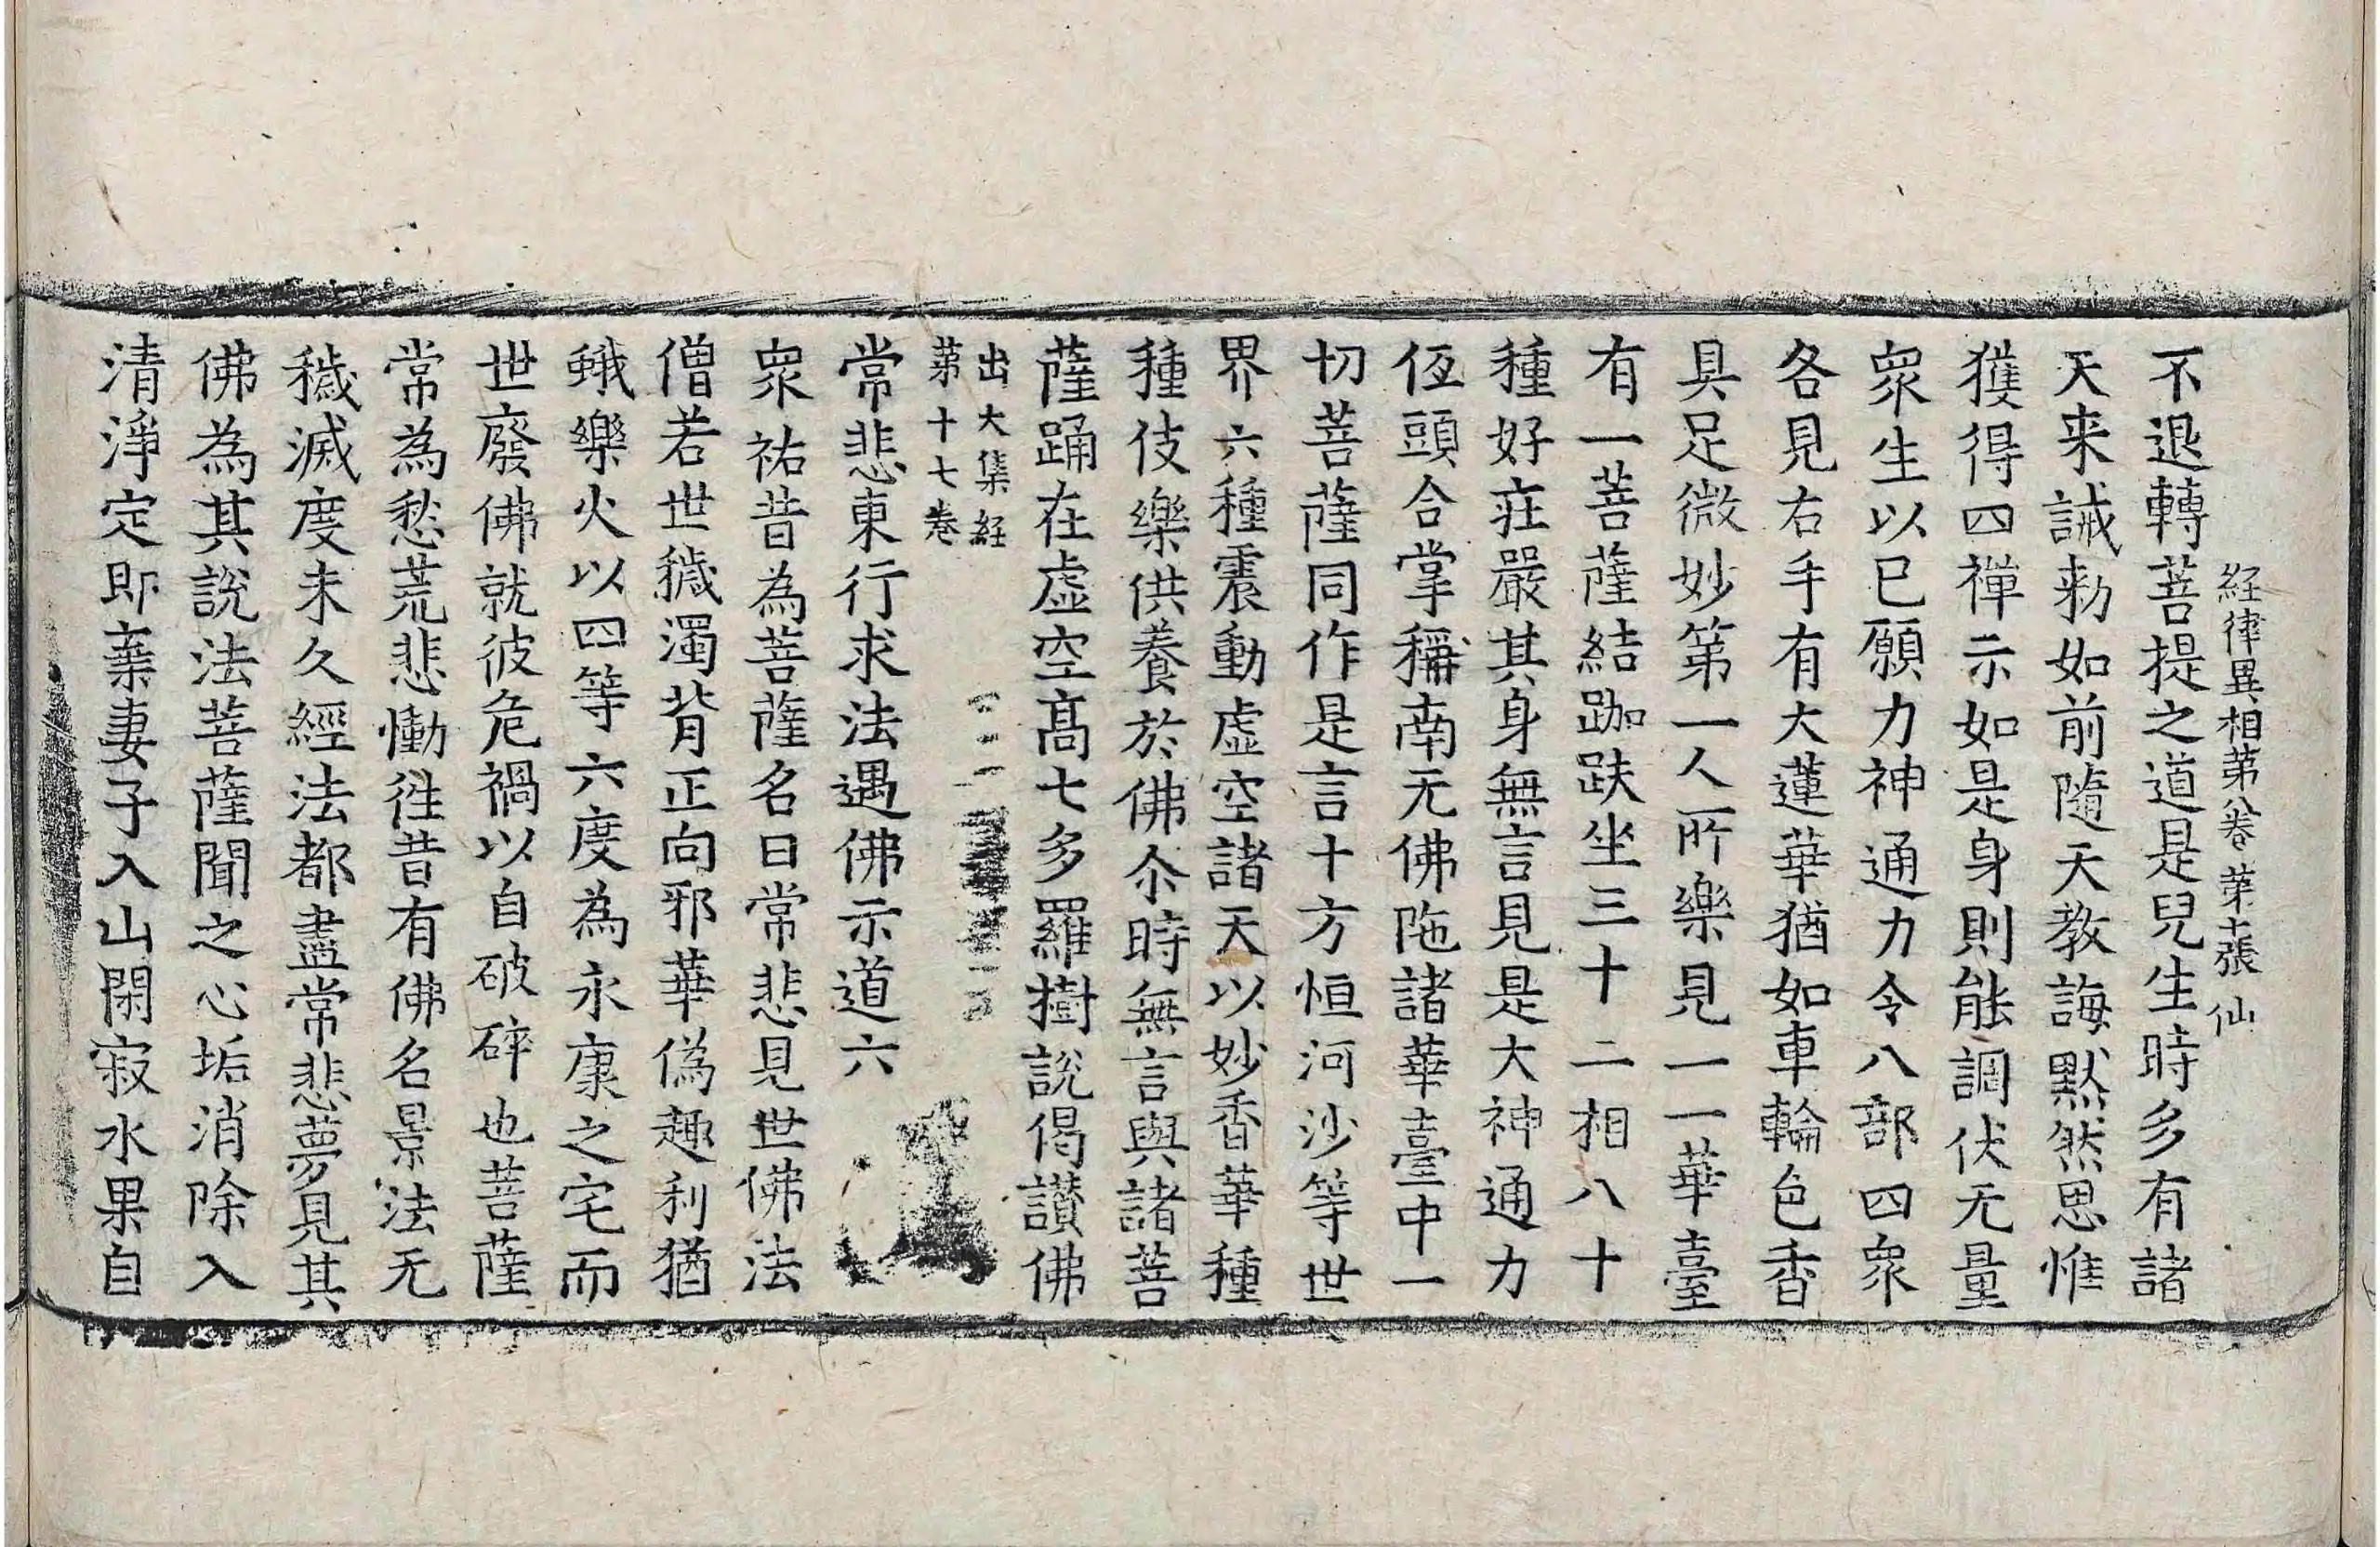 経律異相第八卷 第十張 仙
不退轉菩提之道是兒生時多有諸
天来誡勑如前隨天教誨默然思惟
獲得四禪示如是身則能調伏无量
衆生以已願力神通力令八部四衆
各見右手有大蓮華猶如車輪色香
具足微妙第一人所樂見一一華臺
有一菩薩結跏趺坐三十二相八十
種好莊嚴其身無言見是大神通力
低頭合掌稱南无佛陁諸華臺中一
切菩薩同作是言十方恒河沙等世
界六種震動虛空諸天以妙香華種
種伎樂供養於佛尒時無言與諸菩
薩踊在虛空髙七多羅樹說偈讃佛
出大集経
苐十七卷
常悲東行求法遇佛示道六
衆祐昔為菩薩名曰常悲見世佛法
僧若世穢濁背正向邪華偽趣利猶
蛾樂火以四等六度為永康之宅而
世廢佛就彼危禍以自破碎也菩薩
常為愁荒悲慟徃昔有佛名景法无
穢滅度未久經法都盡常悲夢見其
佛為其說法菩薩聞之心垢消除入
清淨定即棄妻子入山閑寂水果自